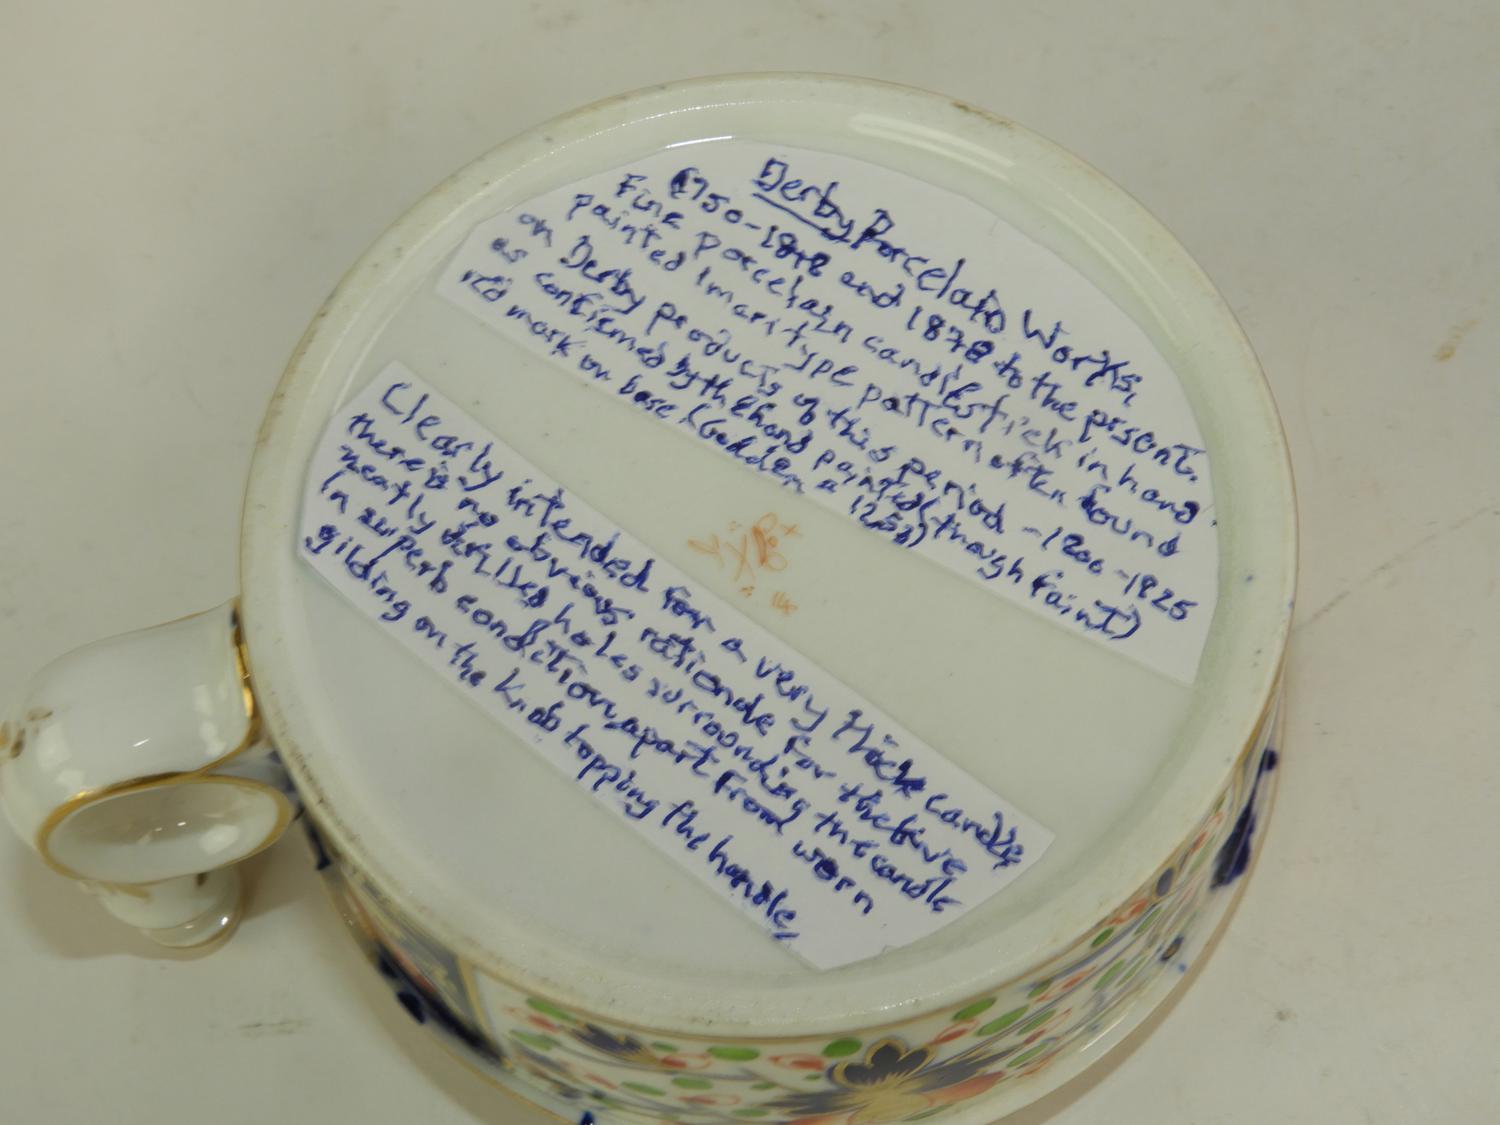 Derby Porcelain Works,
1750-1848 and 1878 to the present.
Fine porcelain candlestick in hand
painted Imari type pattern often found
on Derby products of this period - 1800-1825
as confirmed by the hand painted (though faint)
red mark on base (Godden a 1253)
Clearly intended for a very thick candle
there is no obvious rationale for the five
neatly drilled holes surrounding the candle
In superb condition, apart from worn
gilding on the knob topping the handle,